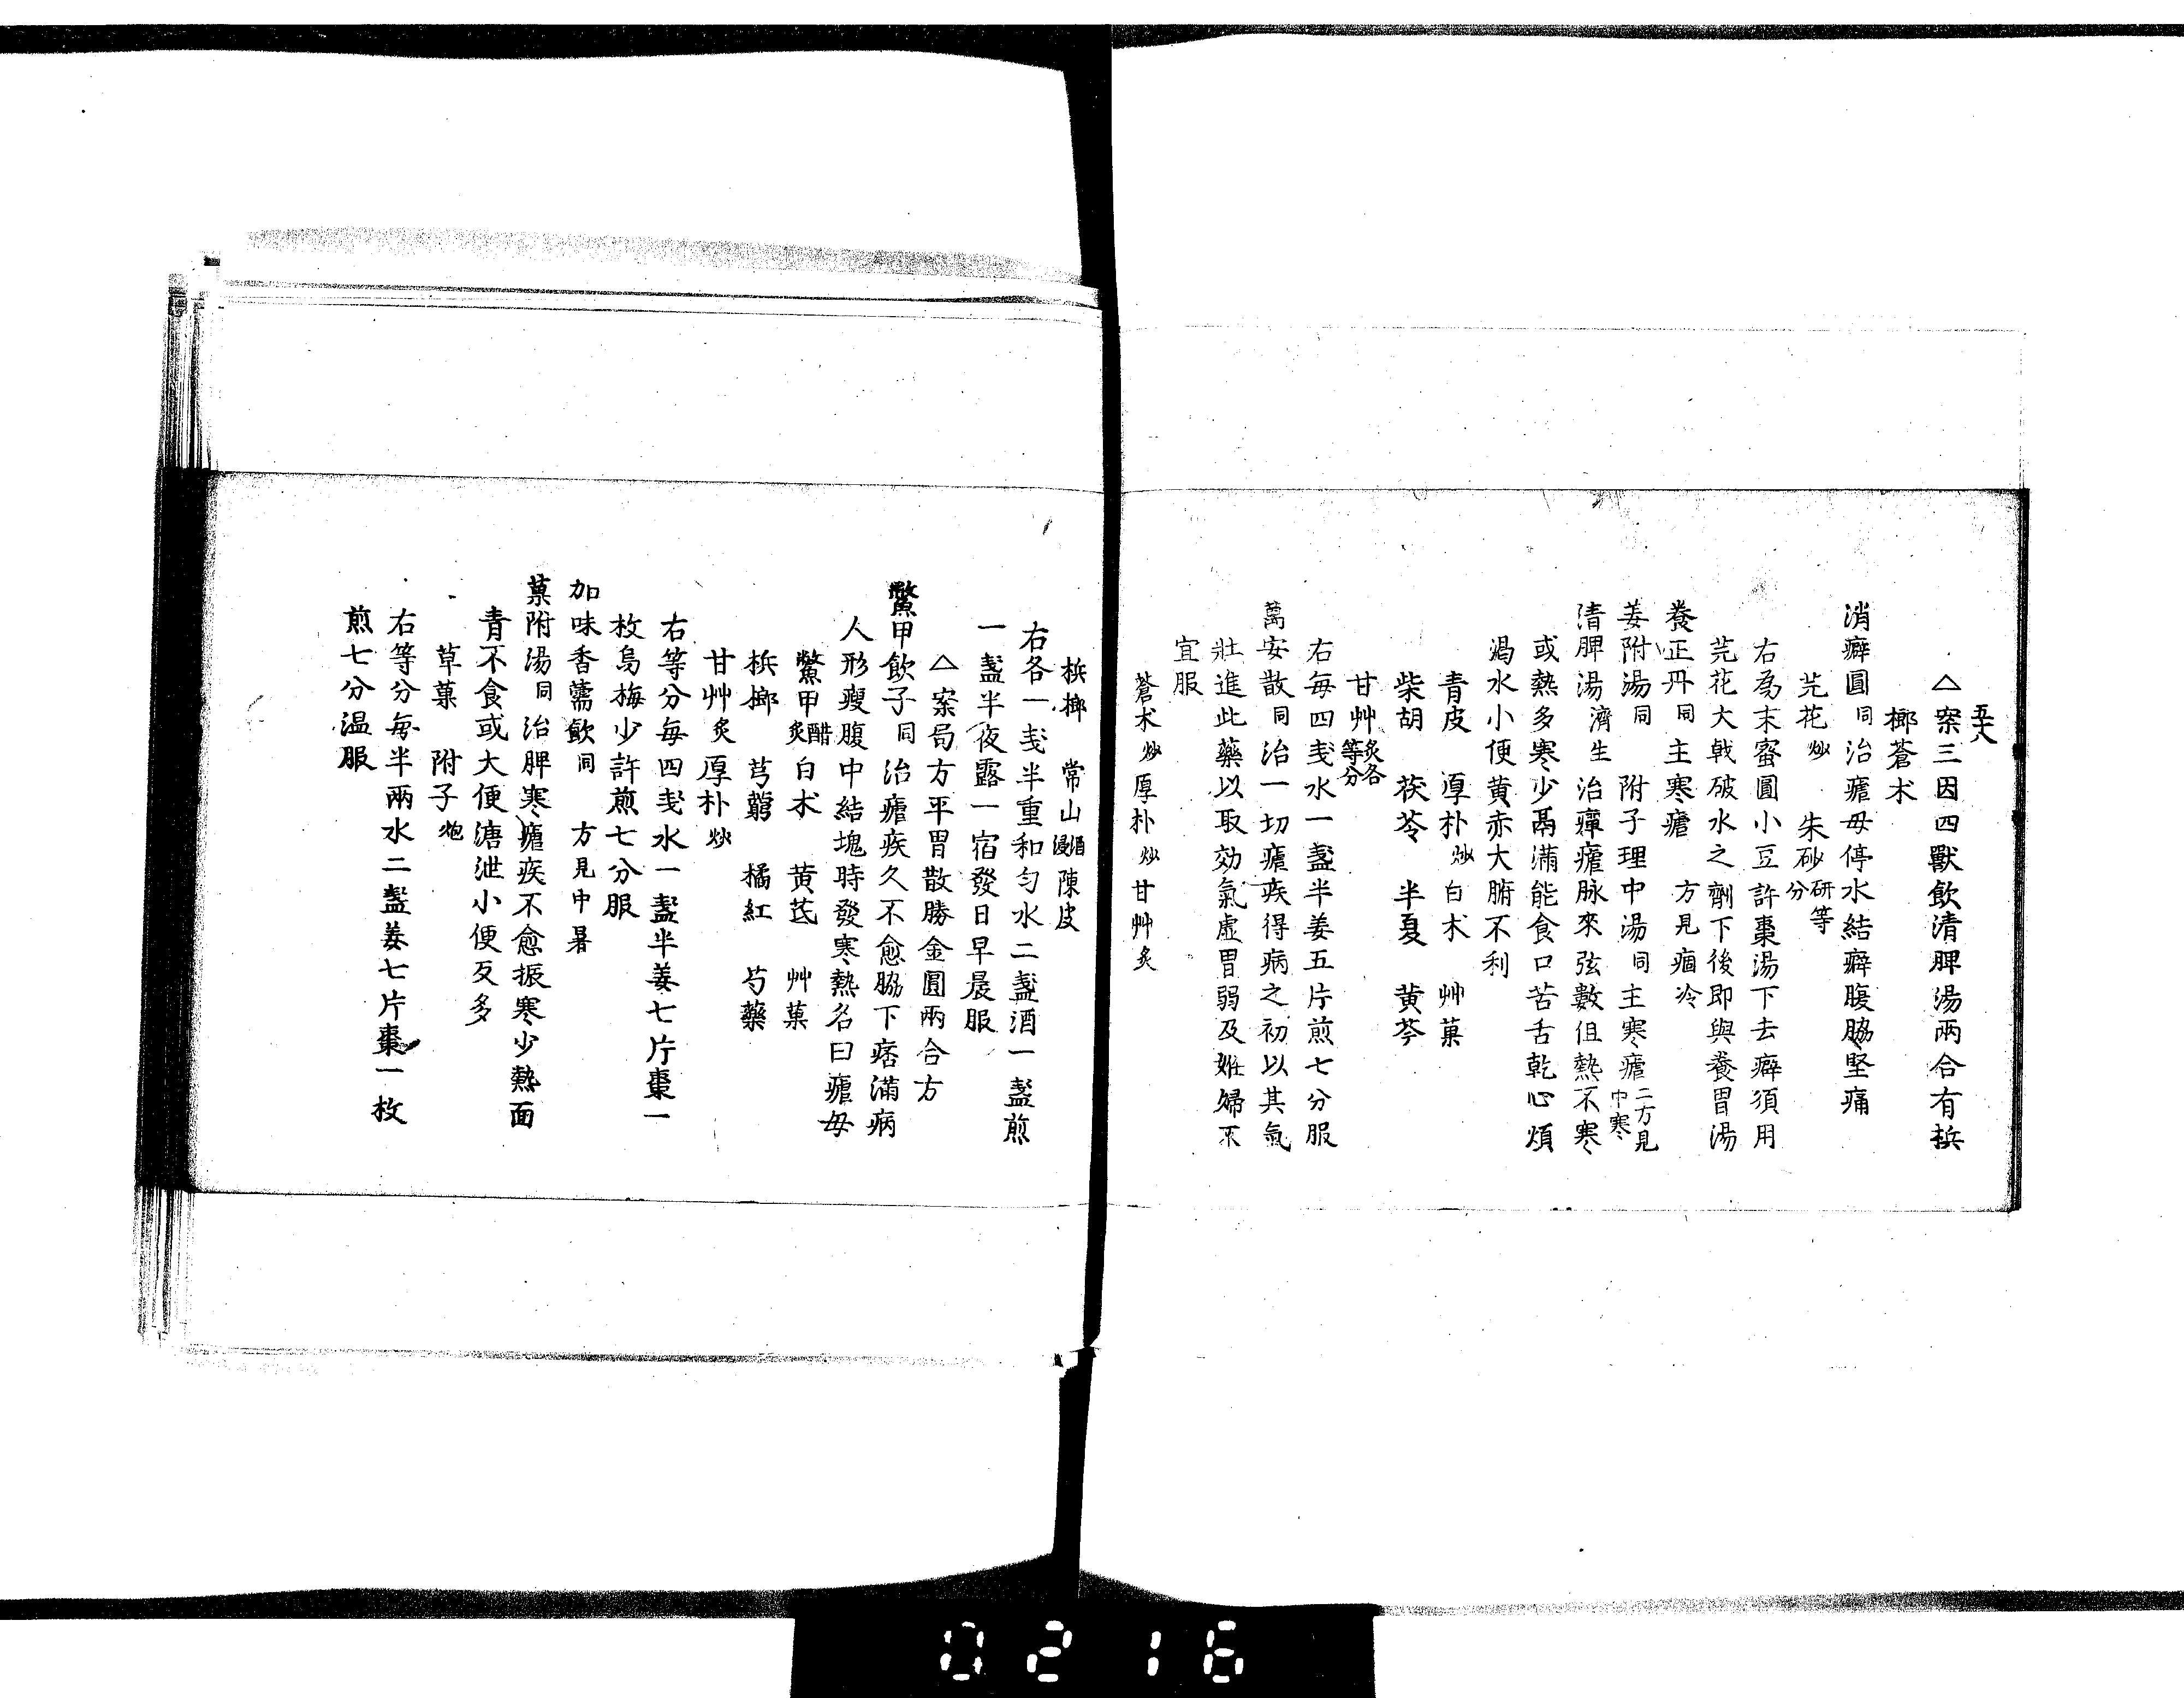 五十八
△案三因四獸飲清脾湯兩合有梹
榔蒼术
消癖圓同治瘧母停水結癖腹脇堅痛
芫花炒 朱砂研等分
右為末蜜圓小豆許棗湯下去癖須用
芫花大戟破水之劑下後即與養胃湯
養正丹同主寒瘧 方見痼冷
姜附湯同 附子理中湯同主寒瘧二方見中寒
清脾湯濟生 治癉瘧脉來弦數但熱不寒
或熱多寒少鬲滿能食口苦舌乾心煩
渴水小便黄赤大腑不利
青皮 厚朴炒 白术 艸菓
柴胡 茯苓 半夏 黄芩
甘艸炙各等分
右毎四戔水一盞半姜五片煎七分服
萬安散同治一切瘧疾得病之初以其氣
壯進此藥以取効氣虚胃弱及妊婦不
宜服
蒼术炒 厚朴炒 甘艸炙
梹榔 常山酒浸 陳皮
右各一戔半重和匀水二盞酒一盞煎
一盞半夜露一宿發日早晨服
△案局方平胃散勝金圓兩合方
鱉甲飲子同治瘧疾久不愈脇下痞滿病
人形瘦腹中結塊時發寒熱名曰瘧母
鱉甲醋炙 白术 黄芪 艸菓
梹榔 芎藭 橘紅 芍藥
甘艸炙 厚朴炒
右等分毎四戔水一盞半姜七片棗一
枚烏梅少許煎七分服
加味香薷飲同 方見中暑
菓附湯同治脾寒瘧疾不愈振寒少熱面
青不食或大便溏泄小便反多
草菓 附子炮
右等分毎半兩水二盞姜七片棗一枚
煎七分温服
0216